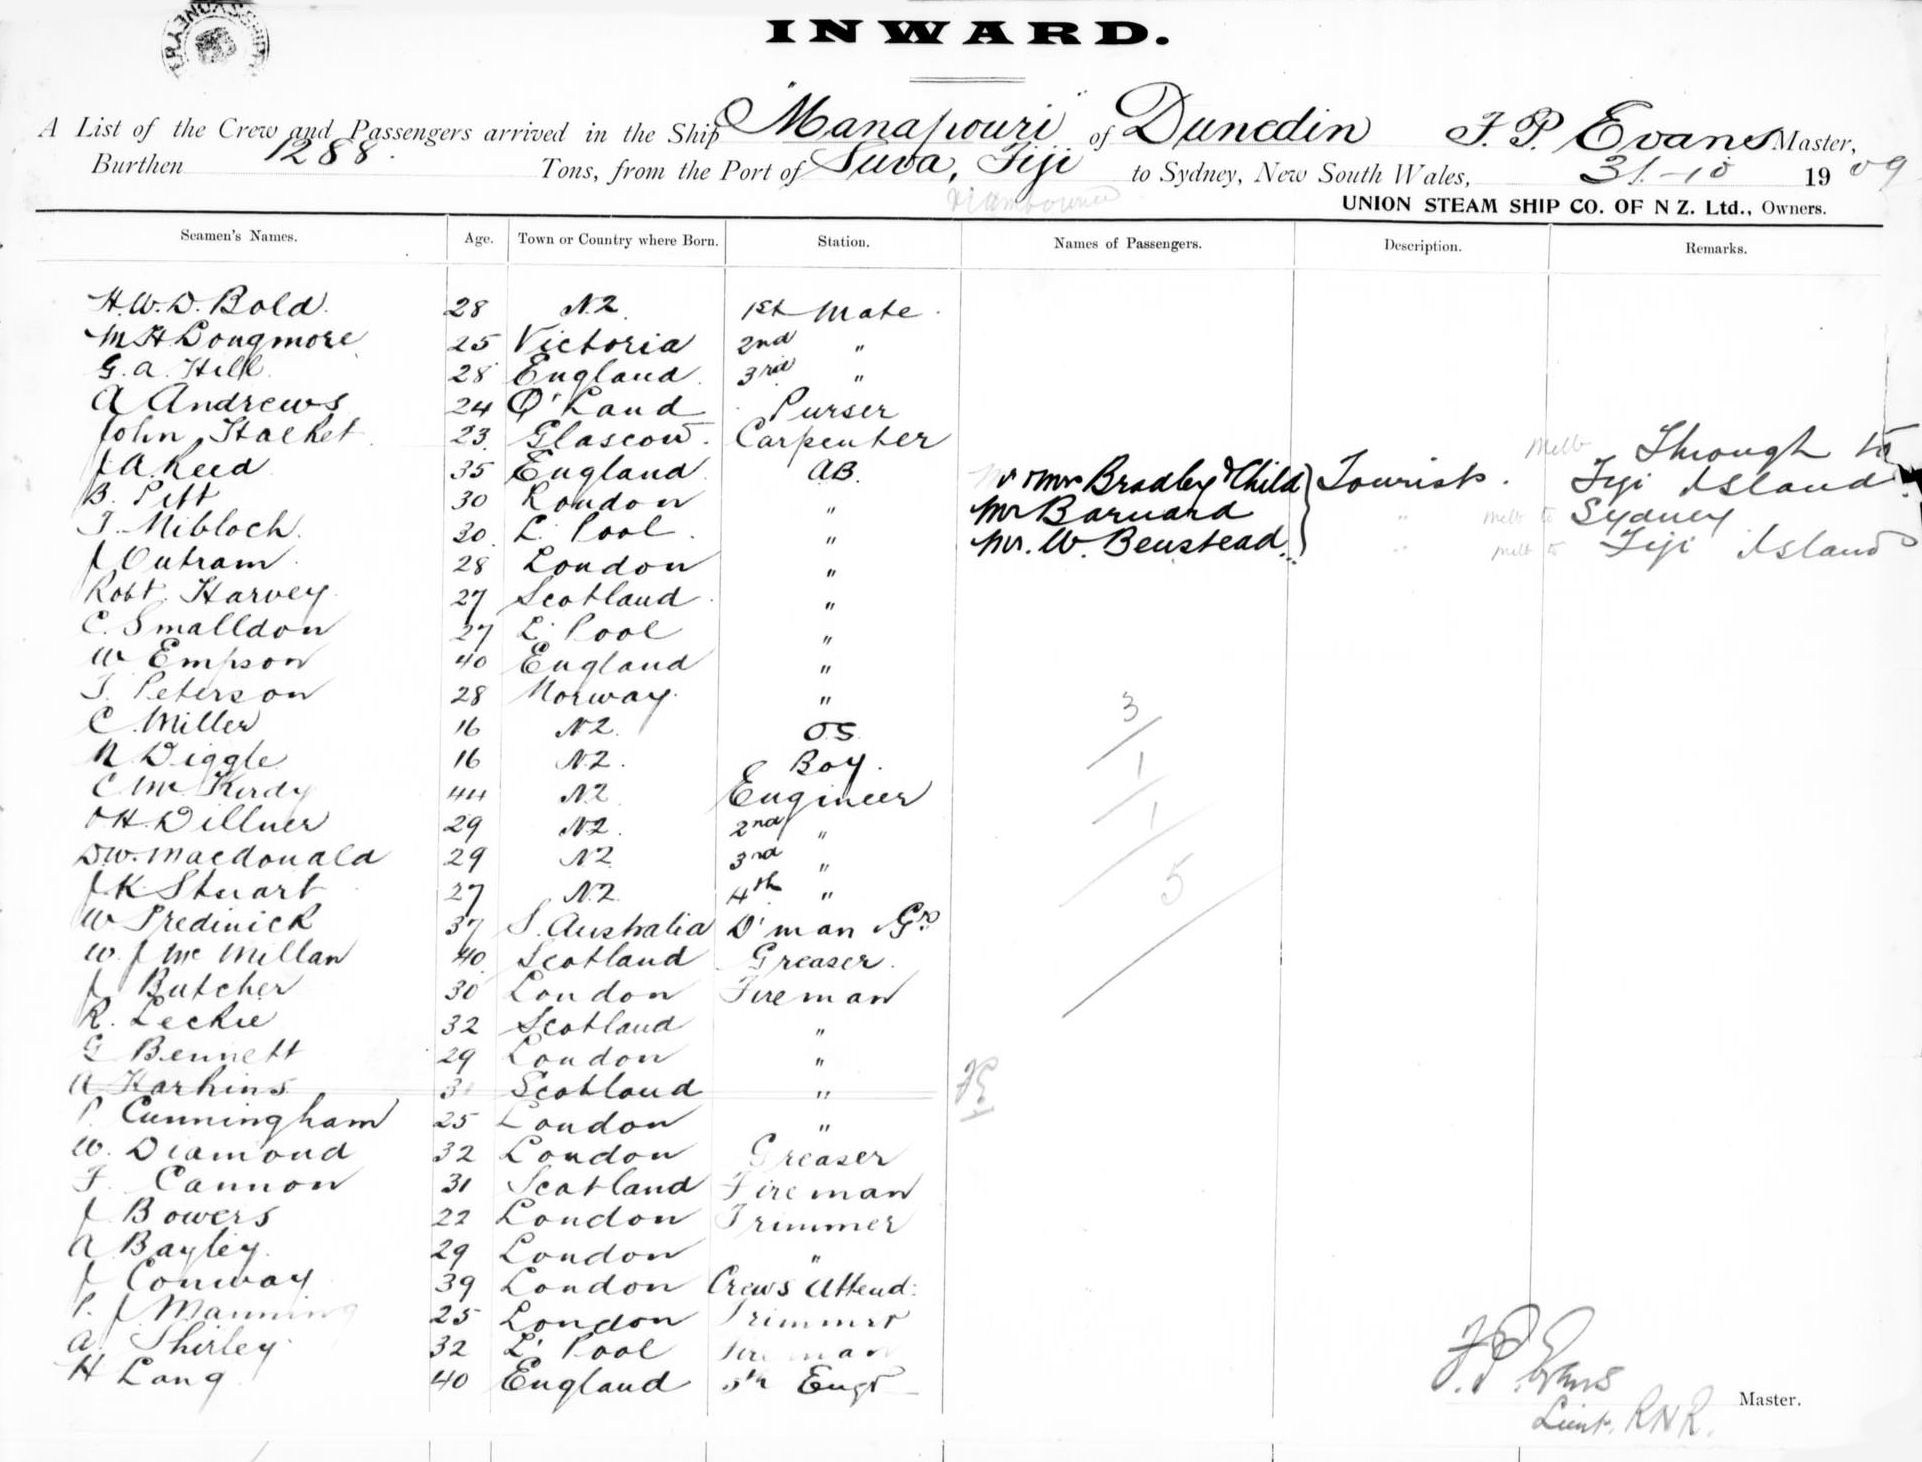 INWARD.
A List of the Crew and Passengers arrived in the Ship "Manapouri" of Dunedin F. P. Evans Master,
Burthen 1288 Tons, from the Port of Suva, Fiji to Sydney, New South Wales, 31-10 1909
UNION STEAM SHIP CO. OF N Z. Ltd., Owners.
Seamen's Names. Age. Town or Country where Born. Station. Names of Passengers. Description. Remarks.
H. W. D. Bold 28 N.Z. 1st Mate
M H Longmore 25 Victoria 2nd "
G. A. Hill 28 England 3rd "
A Andrews 24 Q'Land Purser
John Halket 23 Glascow Carpenter Melb Through to
J. A. Reed 35 England AB. Mr & Mrs Bradley & Child Tourists. Fiji Island
B. Pitt 30 London " Mr Barnard " Melb to Sydney
T. Nibloch 30 L. Pool " Mr. W. Benstead " Melb to Fiji Island
J Outram 28 London "
Robt. Harvey 27 Scotland "
C. Smalldon 27 L. Pool "
W Empson 40 England "
T. Peterson 28 Norway "
C. Miller 16 N.Z. O.S. 3
N Diggle 16 N.Z. Boy. 1
C McKirdy 44 N.Z. Engineer
H. Dillner 29 N.Z. 2nd " 1
D W. Macdonald 29 N.Z. 3rd "
J. K. Stuart 27 N.Z. 4th " 5
W Predinick 37 S. Australia D'man & Gr.
W. J Mc Millan 40 Scotland Greaser.
J Butcher 30 London Fireman
R. Leckie 32 Scotland "
G Bennett 29 London "
A Harkins 3 Scotland "
P. Cunningham 25 London "
W. Diamond 32 London Greaser
F. Cannon 31 Scotland Fireman
J Bowers 22 London Trimmer
A Bayley 29 London "
J Conway 39 London Crews Attend:
P. J Manning 25 London Trimmer
A. Shirley 32 L' Pool Fireman
H Lang 40 England 5th Engr
F. P. Evans Master.
Lieut. R.N.R.